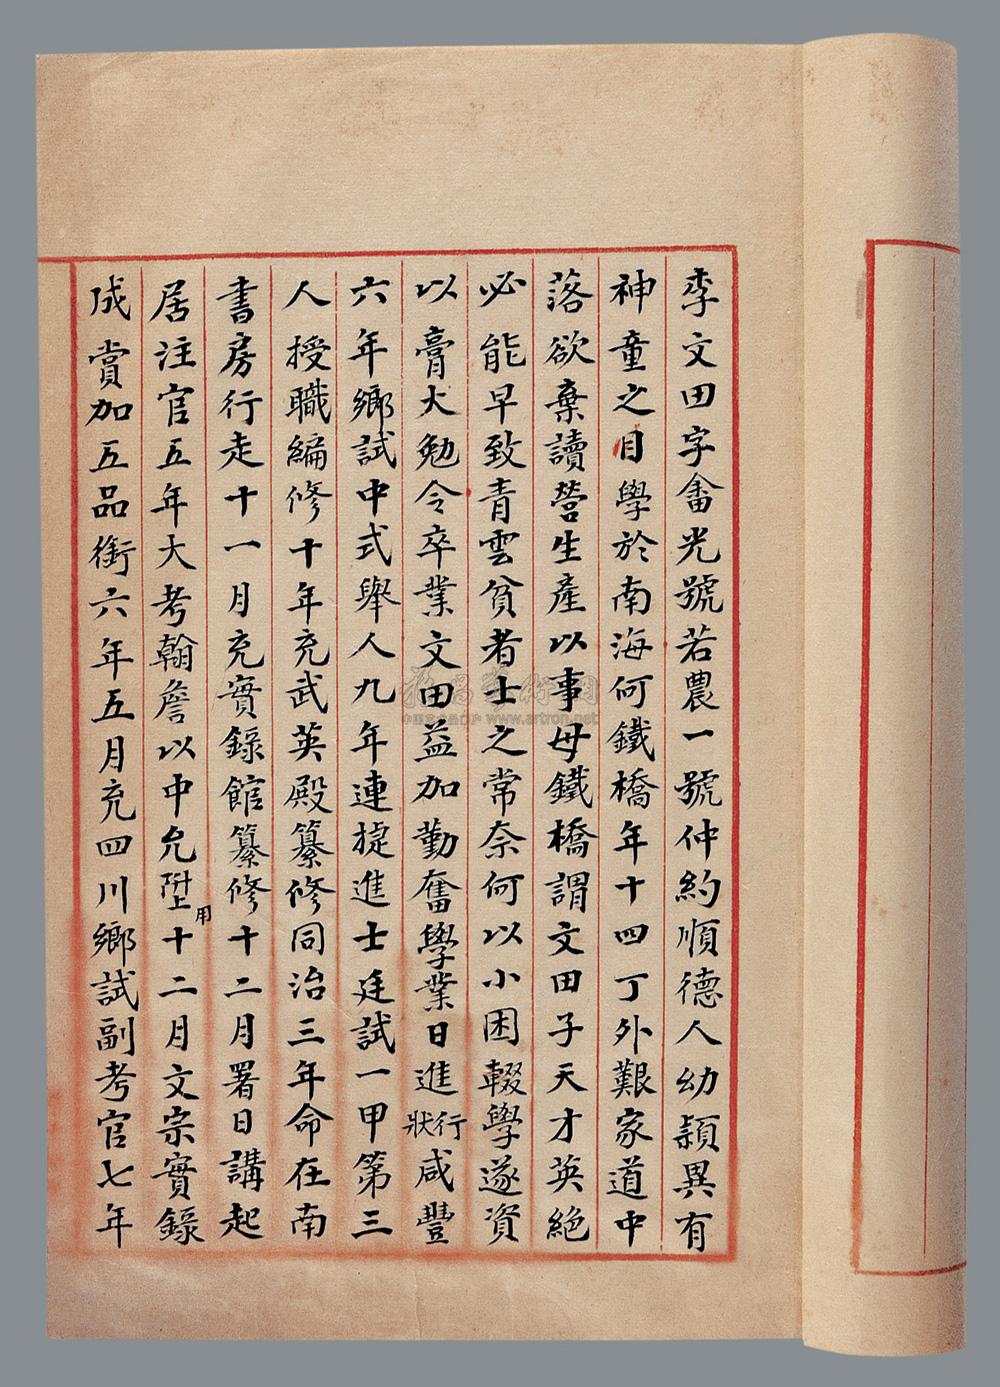 李文田字畬光號若農一號仲約順德人幼穎異有
神童之目學於南海何鐵橋年十四丁外艱家道中
落欲棄讀營生產以事母鐵橋謂文田子天才英絕
必能早致青雲貧者士之常奈何以小困輟學遂資
以膏火勉令卒業文田益加勤奮學業日進行狀咸豐
六年鄉試中式舉人九年連捷進士廷試一甲第三
人授職編修十年充武英殿纂修同治三年命在南
書房行走十一月充實錄館纂修十二月署日講起
居注官五年大考翰詹以中允陞用十二月文宗實錄
成賞加五品銜六年五月充四川鄉試副考官七年
www.artron.net